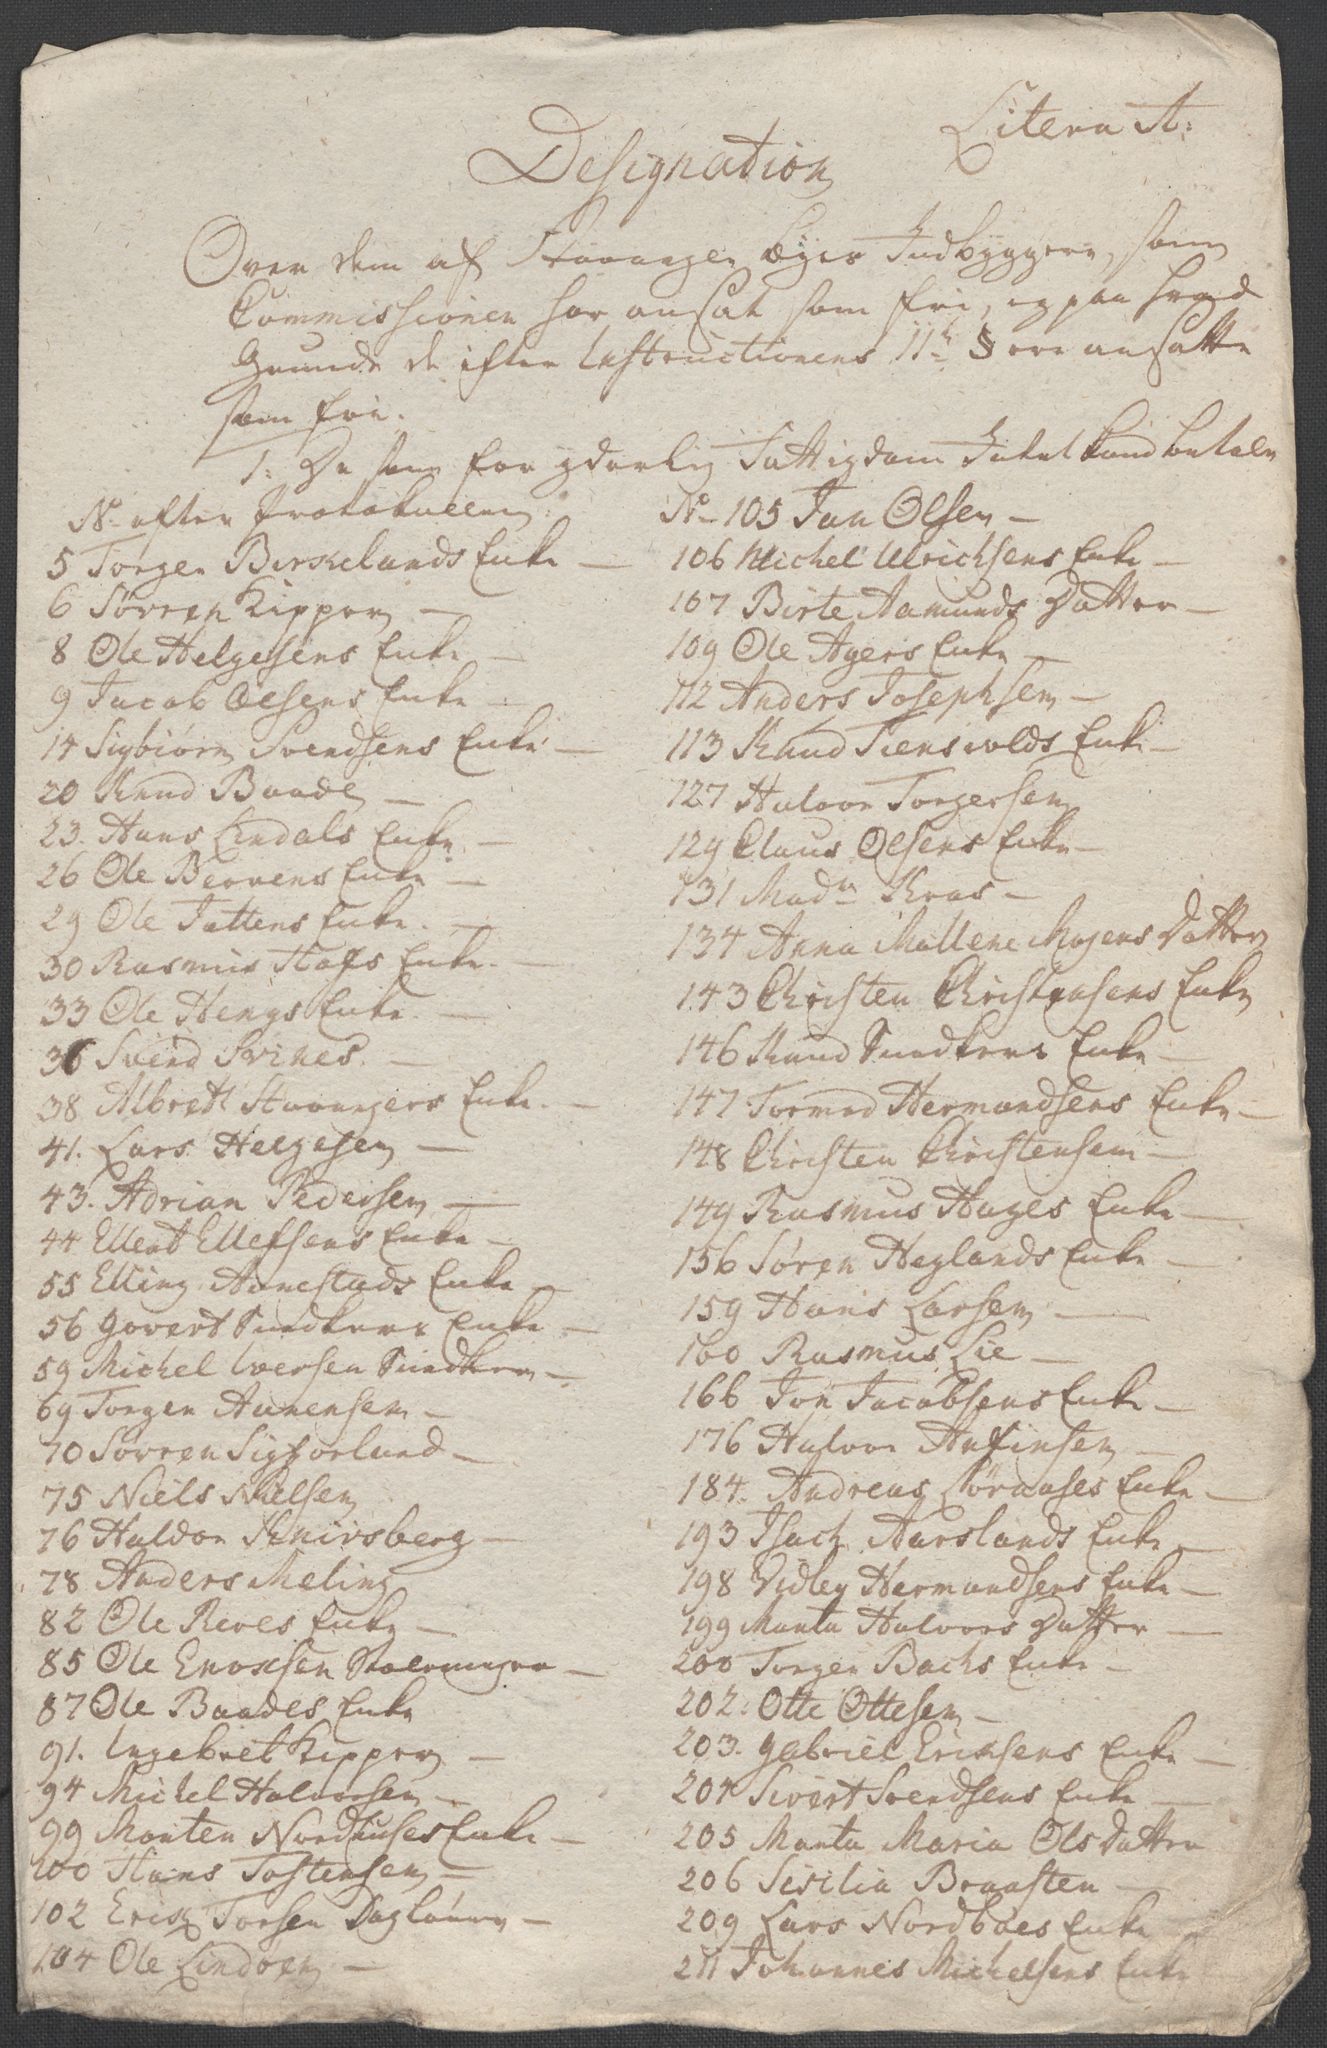 Litera A:
Designation
Over dem af Stavanger Byes Indbyggere, som
Commissionen har ansat som frie, og paa hvad
Grunde de efter Instructionens 11te § ere ansatte
som frie.
1: De som for yderlig Fattigdom Intet kand betale
No efter Protokollen
5 Torger Birkelands Enke —
6 Sørren Kipper —
8 Ole Helgesens Enke —
9 Jacob Olsens Enke —
14 Sigbiørn Svendsens Enke —
20 Knud Baade —
23. Hans Lindals Enke —
26 Ole Bervens Enke —
29 Ole Tattens Enke. —
30 Rasmus Hafs Enke. —
33 Ole Hengs Enke. —
36 Svend Svines —
38 Albrett Stavangers Enke. —
41. Lars Helgesen —
43. Adrian Pedersen —
44 Ellert Ellefsens Enke —
55 Elling Aanestads Enke —
56 Govert Snedkers Enke —
59 Michel Iversen Snedker —
69 Torger Aanensen —
70 Sørren Sigforlund —
75 Niels Nielsen
76 Haldor Knivsberg —
78 Anders Meling
82 Ole Reves Enke —
85 Ole Enoksen —
87 Ole Baades Enke
91. Ingebret Kipper —
94 Michel Halvorsen —
99 Morten Nordhuses Enke —
100 Hans Tostensen —
102 Erik Torsen Dagløner —
104 Ole Lindøen —
No 105 Jan Olsen —
106 Michel Ulrichsens Enke —
107 Birte Aamunds Datter —
109 Ole Ayers Enke —
112 Anders Josephsen —
113 Knud Tiensvolds Enke —
127 Halvor Torgersen
129 Claus Olsens Enke —
131 Madm Kras —
134 Anna Mallene Mogens Datter
143 Christen Christensens Enke
146 Knud Snedkers Enke —
147 Tormod Hermandsens Enke —
148 Christen Christensen —
149 Rasmus Hages Enke —
156 Søren Heglands Enke —
159 Hans Larsen —
160 Rasmus Lie —
166 Jon Jacobsens Enke —
176 Halvor Anfinsen —
184. Andreas Enke —
193 Isach Aarslands Enke —
198 Vidley Hermandsens Enke —
199 Marta Halvors Datter —
200 Torger Bachs Enke —
202. Otte Ottesen —
203. Gabriel Eriksens Enke —
204 Sivert Svendsens Enke —
205 Marta Maria Ols Datter
206 Sisilia Braasten —
209 Lars Nordboes Enke
211 Johannes Michelsens Enke